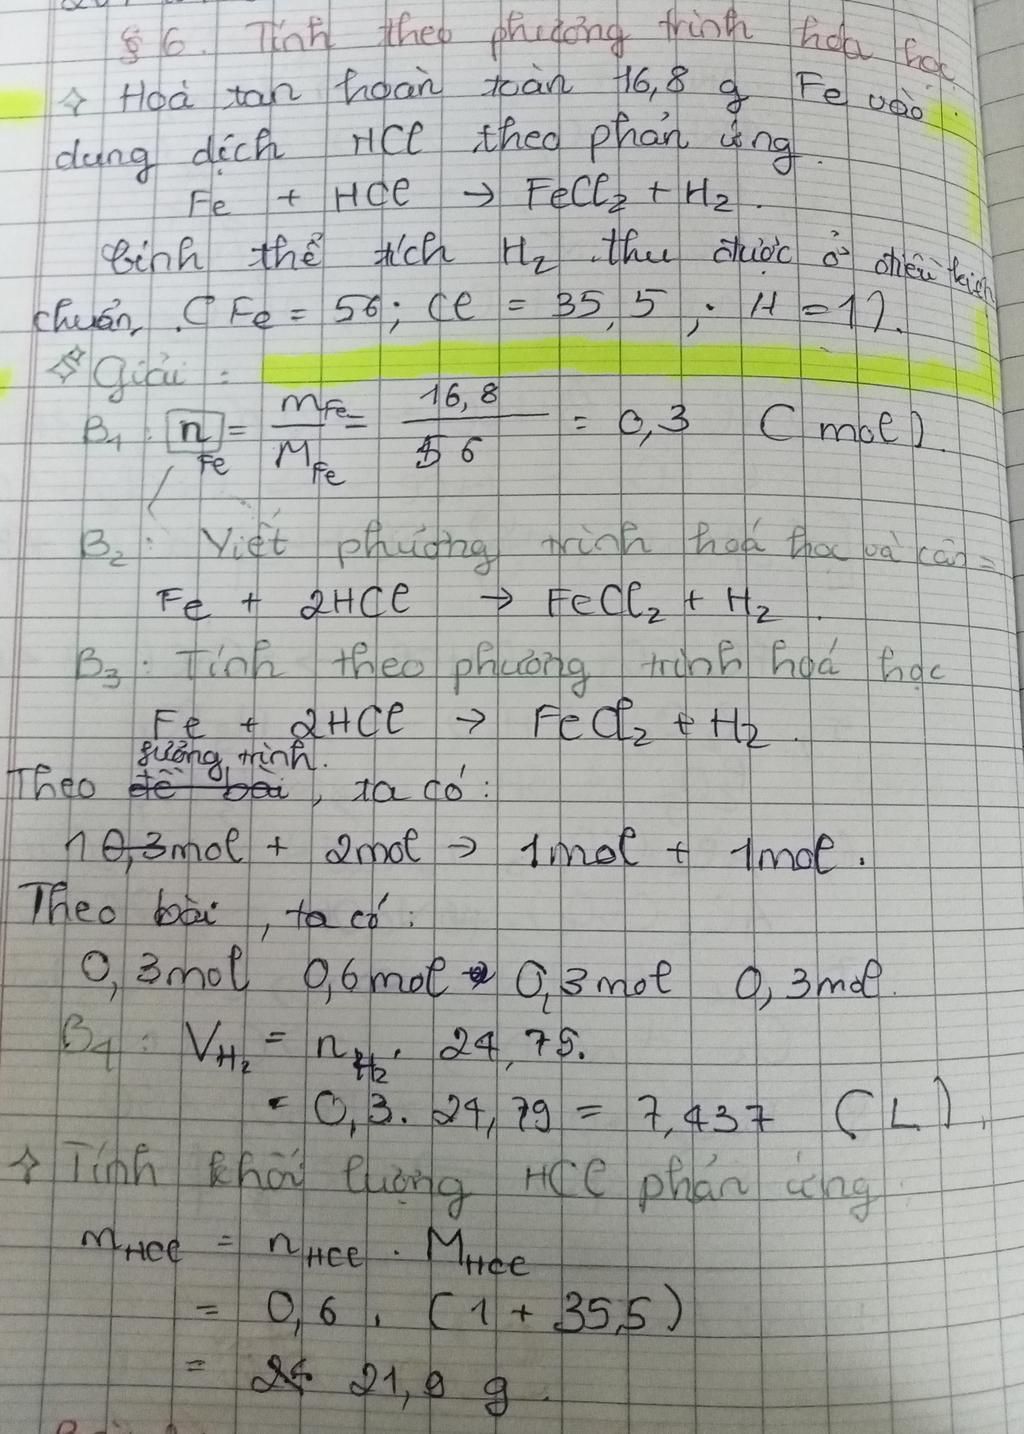 § 6. Tính theo phương trình hóa học
Hoà tan hoàn toàn 16,8 g Fe vào
dung dịch HCl theo phản ứng.
Fe + HCl → FeCl₂ + H₂.
Tính thể tích H₂ thu được ở điều kiện
chuẩn, (Fe = 56; Cl = 35,5; H = 1).
Giải:
B₁: n Fe = mFe / MFe = 16,8 / 56 = 0,3 (mol)
B₂: Viết phương trình hoá học và cân =
Fe + 2HCl → FeCl₂ + H₂.
B₃: Tính theo phương trình hoá học
Fe + 2HCl → FeCl₂ + H₂.
trình.
Theo đề bài, ta có:
1 0,3mol + 2mol → 1mol + 1mol.
Theo bài, ta có:
0,3mol 0,6mol 0,3mol 0,3mol.
B₄: V H₂ = n H₂ . 24,79.
= 0,3. 24,79 = 7,437 (L).
Tính khối lượng HCl phản ứng.
mHCl = nHCl . MHCl
= 0,6 . (1 + 35,5)
= 21,9 g.